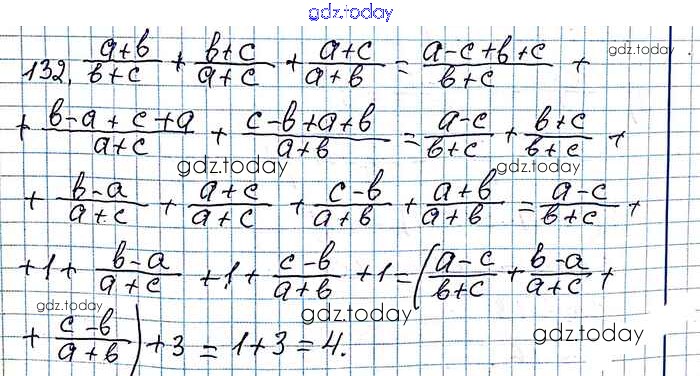 gdz.today
132. (a+b)/(b+c) + (b+c)/(a+c) + (a+c)/(a+b) = (a-c+b+c)/(b+c) + gdz.today
+ (b-a+c+a)/(a+c) + (c-b+a+b)/(a+b) = (a-c)/(b+c) + (b+c)/(b+c) +
gdz.today gdz.today
+ (b-a)/(a+c) + (a+c)/(a+c) + (c-b)/(a+b) + (a+b)/(a+b) = (a-c)/(b+c) +
+1+ (b-a)/(a+c) +1+ (c-b)/(a+b) +1 = ((a-c)/(b+c) + (b-a)/(a+c) +
gdz.today gdz.today gdz.today
+ (c-b)/(a+b)) +3 = 1+3 = 4.